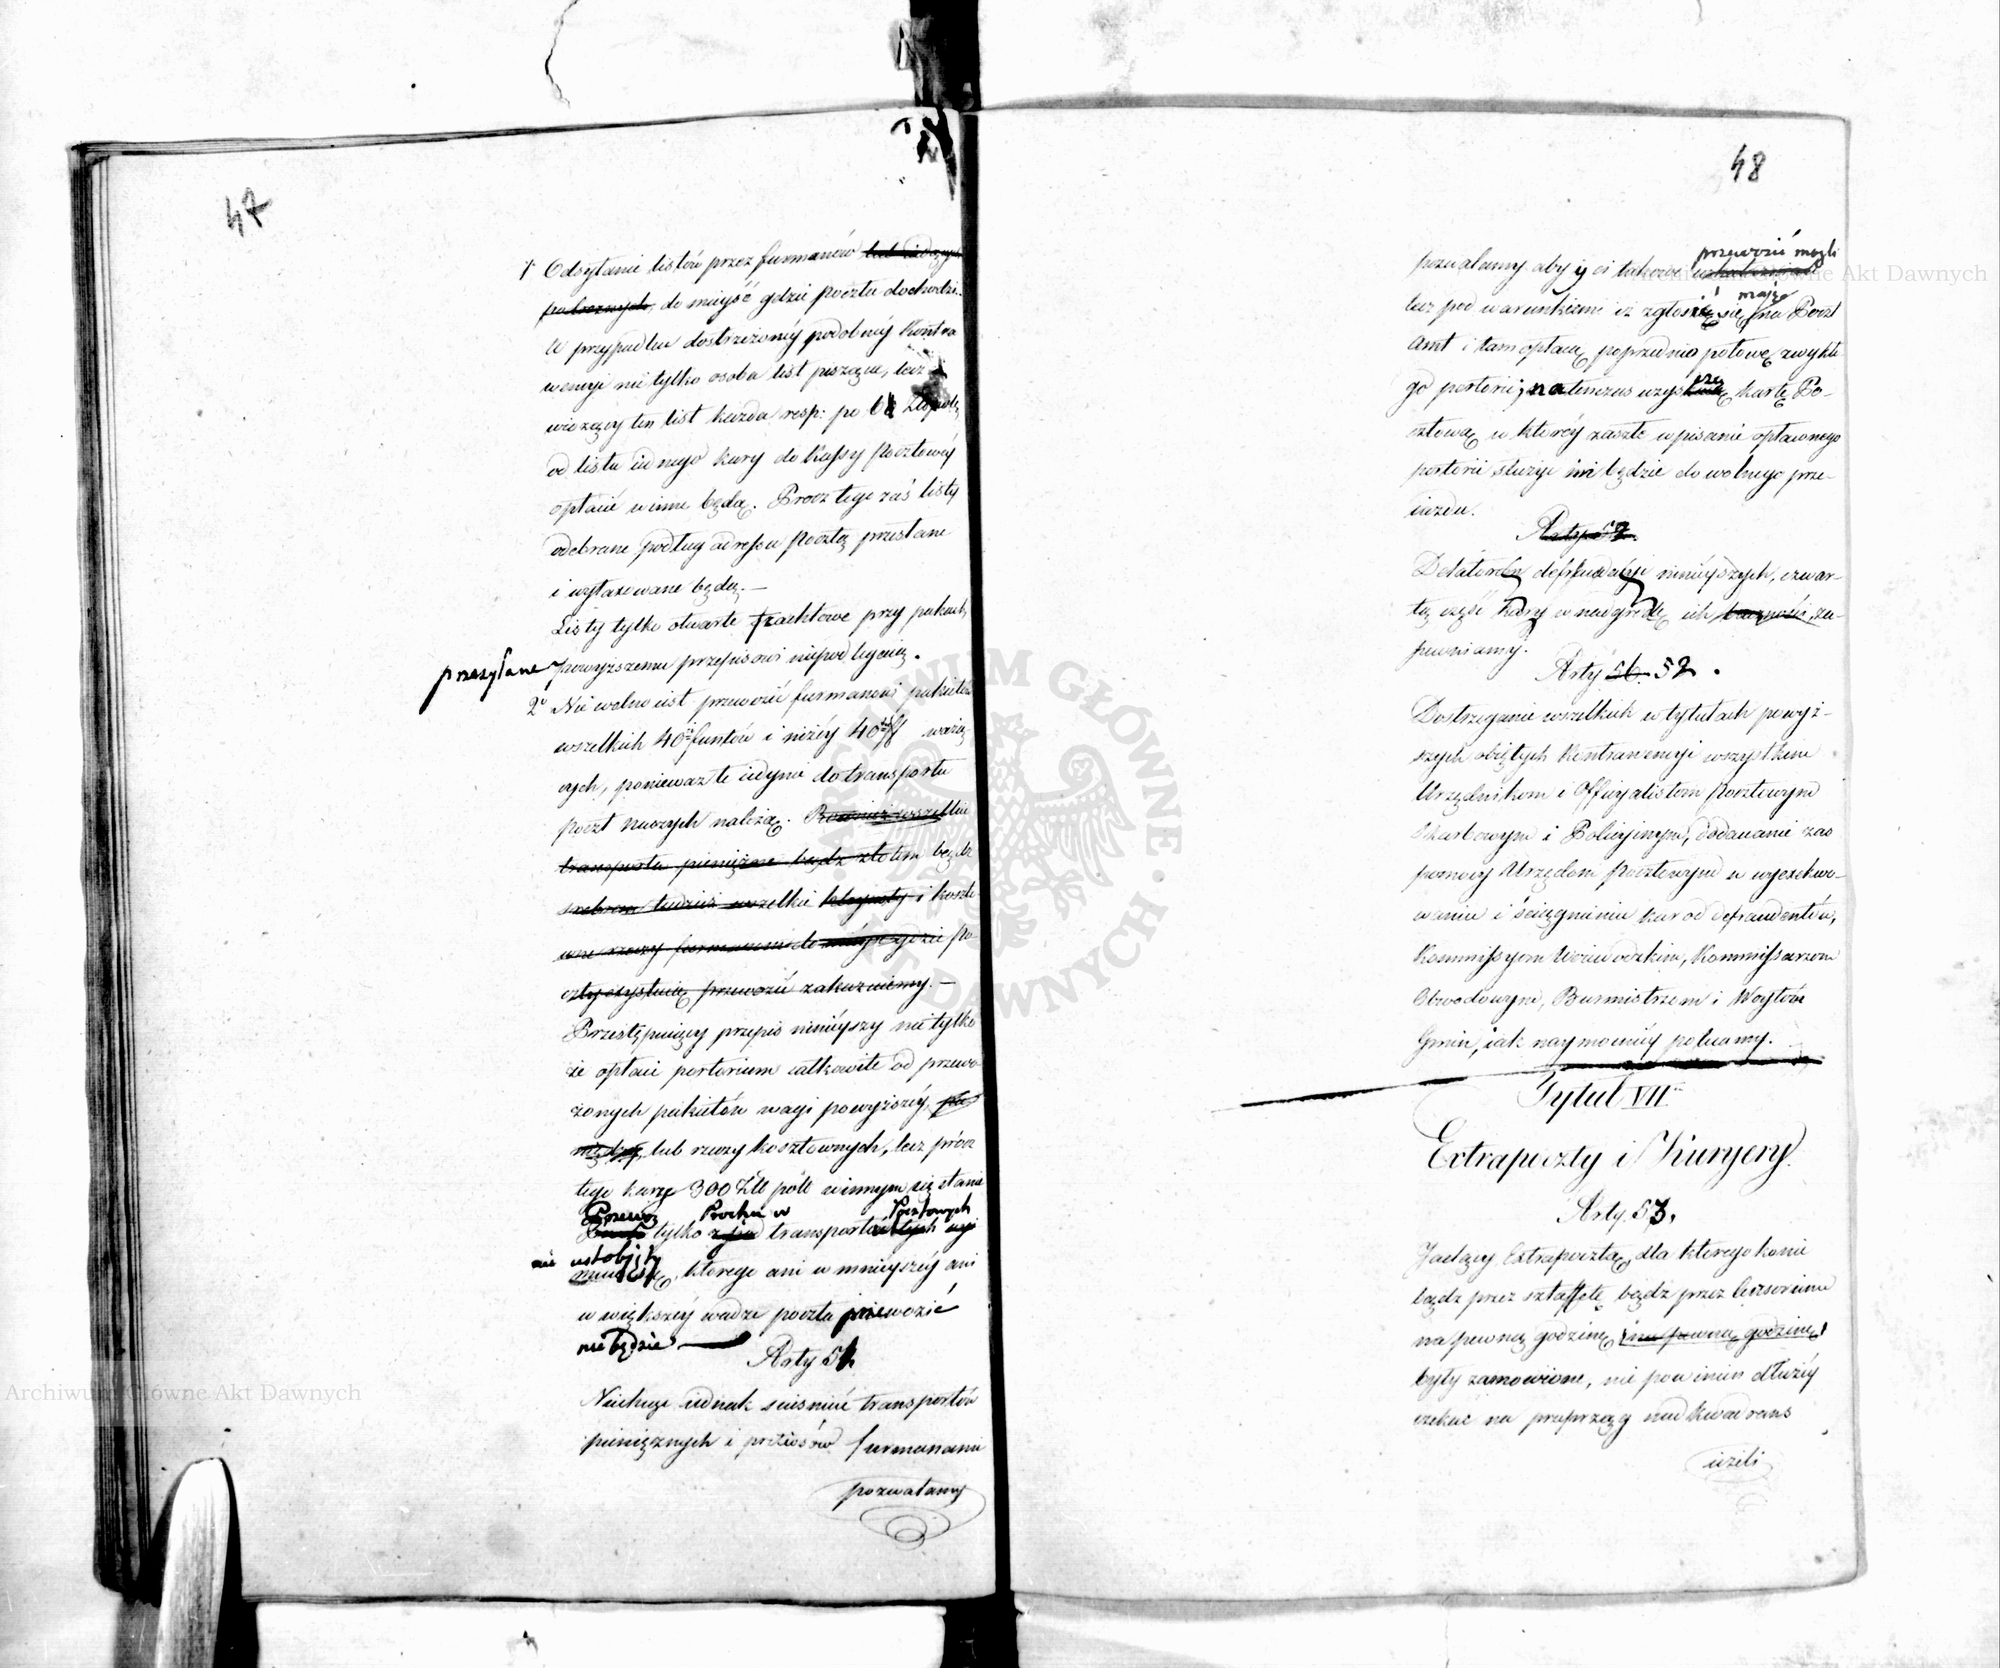 47
1° Odsyłanie listów przez furmanów lub iadących
pobocznych, do mieysć gdzie poczta dochodzi.
W przypadku dostrzeżonéy podobnéy Kontra
wencyi nie tylko osoba list pisząca, lecz
wiozący ten list każda resp: po Złł polł
od listu iednego kary do Kassy Pocztowéy
opłacić winne będą. Procz tego zaś listy
odebrane podług adressu Pocztą przesłane
i wytaxowane będą. —
Listy tylko otwarte frachtowe przy pakach,
przesyłane powyższemu przepisowi niepodlegaią.
2° Nie wolno iest przewozić furmanom pakietów
wszelkich 40 funtów i niżéy 40 ważą
cych, ponieważ te iedynie do transportu
poczt Naszych należą. Również wszelkie
transporta pieniężne bądź złotem bądź
srebrem tudzież wszelkie kleynoty i koszto
wne rzeczy furmanom do mieysc gdzie Po
czty exystuią przewozić zakazuiemy. —
Przestępuiący przepis ninieyszy nie tylko
że opłaci portorium całkowite od przewo
żonych pakietów wagi powyższéy, pie
niędzy lub rzeczy kosztownych, lecz prócz
tego karze 300 Złł polł winnym się stanie
Przewoz Prochu w Pocztowych
tylko transportach
nie iest obięty
którego ani w mnieyszéy ani
w większéy wadze poczta przewozić
nie będzie —
Arty 51
Niechcąc iednak scieśniać transportów
pieniężnych i pretiosów furmanami
pozwalamy
48
przewozić mogli
pozwalamy aby i ci takowe
maią
lecz pod warunkiem iż zgłosić się na Poczt
Amt i tam opłacą poprzednio połowę zwykłe
go portorii; natenczas uzyskaią kartę Po-
cztową w któréy zaszłe wpisanie opłaconego
portorii służyć im będzie do wolnego prze-
iazdu.
Arty 52.
Delatorom defraudacyi ninieyszych, czwar-
tą część kary w nadgrodę ich baczności, za-
pewniamy.
Arty 56. 52.
Dostrzeganie wszelkich w tytułach powyż-
szych obiętych Kontrawencyi wszystkim
Urzędnikom i Officyalistom Pocztowym
Skarbowym i Policyinym, dodawanie zaś
pomocy Urzędom Pocztowym w wyexekwo-
waniu i ściągnieniu kar od defraudantów,
Kommissyom Woiewodzkim, Kommissarzom
Obwodowym, Burmistrzom i Woytom
Gmin, iak naymocniéy polecamy.
Tytuł VII
Extrapoczty i Kuryery.
Arty. 53.
Jadący Extrapocztą, dla którego konie
bądz przez sztaffetę bądz przez
na pewną godzinę (na pewną godzinę)
były zamowione, nie powinien dłużéy
czekać na przeprzęg nad kwadrans
ieżeli